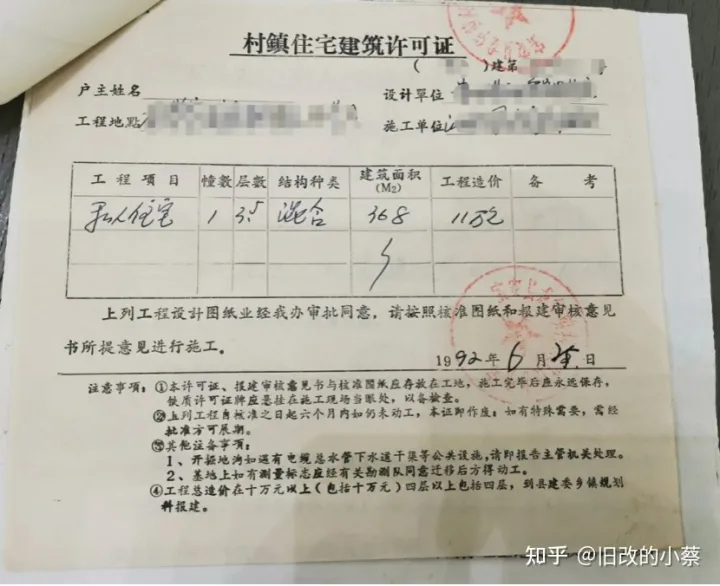 村鎮住宅建筑许可证
( )建第
户主姓名
设计單位
工程地點
施工单位
工程项目 幢数 层数 结构种类 建筑面积(M2) 工程造价 备考
私人住宅 1 3.5 混合 368 11万元
上列工程设计图纸业经我办审批同意，请按照核准图纸和报建审核意见
书所提意见进行施工。
1992年6月 日
注意事项：①本许可证、报建审核意见书与核准图纸应存放在工地，施工完毕后应永远保存，
铁质许可证牌应悬挂在施工现场当眼处，以备检查。
②上列工程自核准之日起六个月内如仍未动工，本证即作废：如有特殊需要，需经
批准方可展期。
③其他注备事项：
1、开掘地沟如遇有电缆总水管下水道干渠等公共设施，请即报告主管机关处理。
2、基地上如有测量标志应经有关勘测队同意迁移后方得动工。
④工程总造价在十万元以上(包括十万元)四层以上包括四层，到县建委乡镇规划
科报建。
知乎 @旧改的小蔡